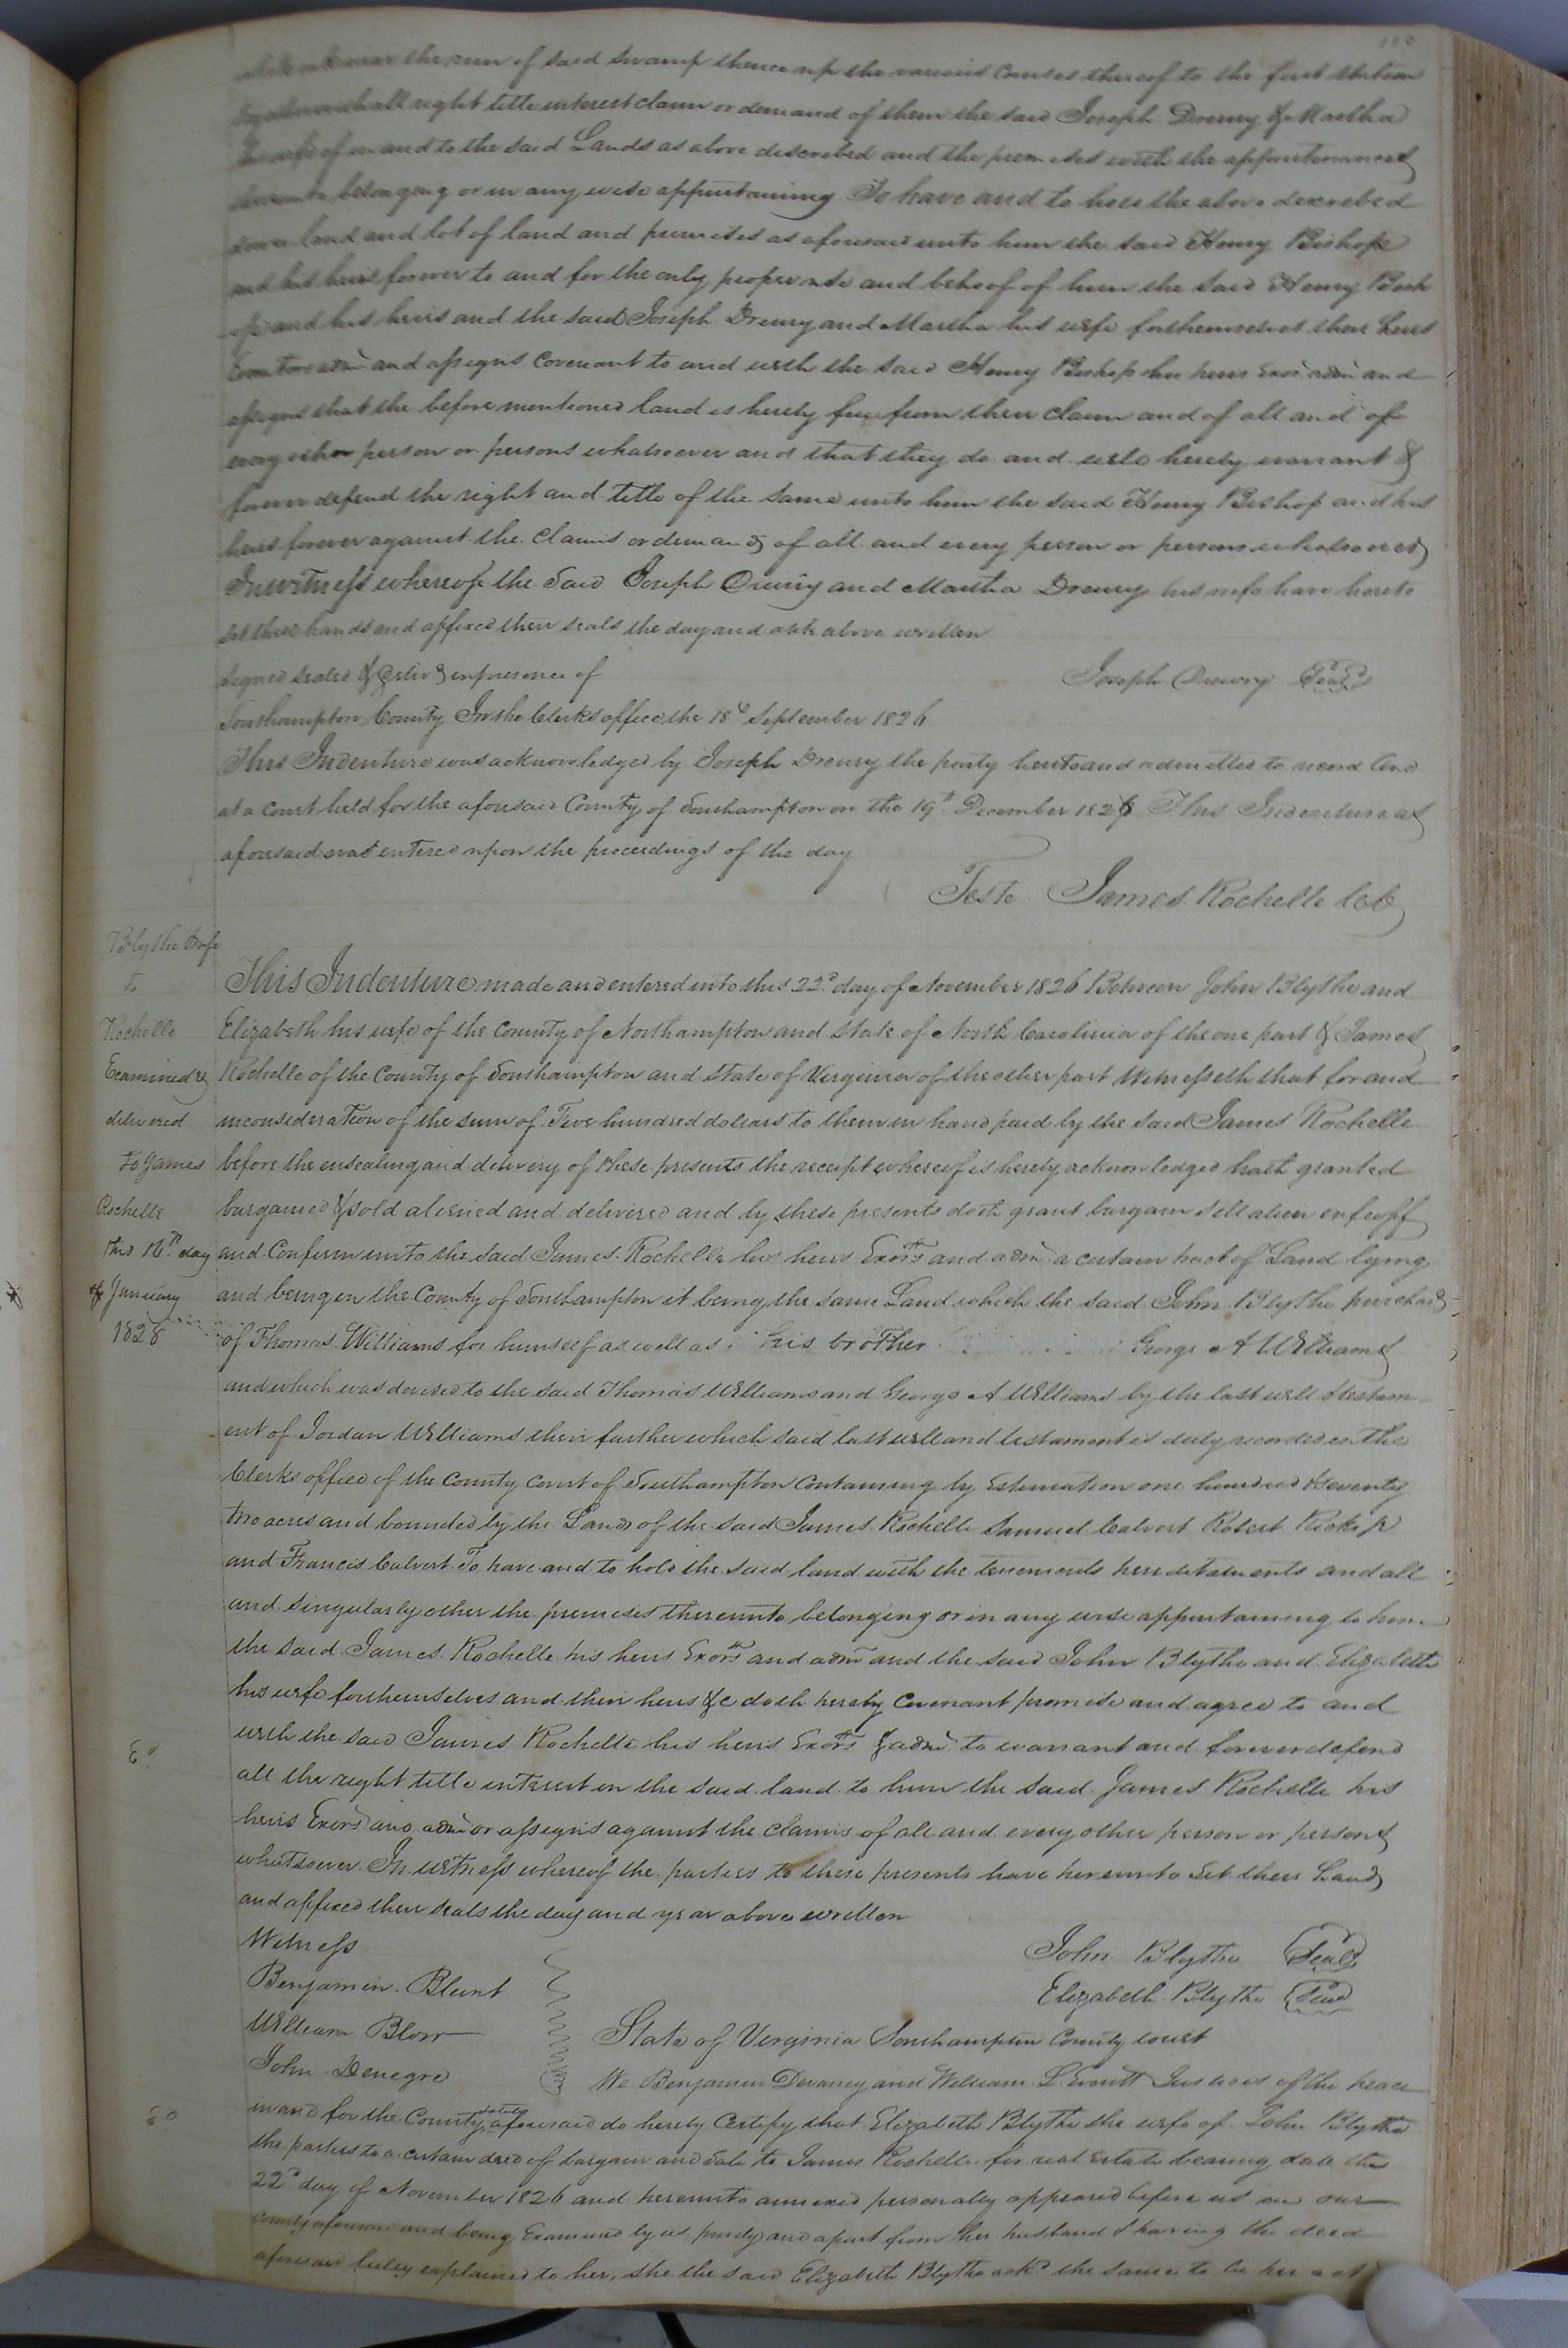 the run of said swamp thence up the various courses thereof to the first station
all right title interest claim or demand of them the said Joseph Drewry & Martha
his wife of in and to the said Lands as above described and the premises with the appurtenances
belonging or in any wise appurtaining To have and to hold the above described
land and lot of land and premises as aforesaid unto him the said Henry Bishop
and his heirs forever to and for the only proper use and behoof of him the said Henry Bish
op and his heirs and the said Joseph Drewry and Martha his wife for themselves their heirs
admr and assigns Covenant to and with the said Henry Bishop his heirs Exor admr and
assigns that the before mentioned land is hereby free from their claim and of all and of
every other person or persons whatsoever and that they do and will hereby warrant &
forever defend the right and title of the same unto him the said Henry Bishop and his
heirs forever against the claims or demands of all and every person or persons whatsoever
In witness whereof the said Joseph Drewry and Martha Drewry his wife have hereto
set their hands and affixed their seals the day and date above written
Signed sealed & deliv.d in presence of
Joseph Drewry Seal
Southampton County In the Clerks office the 18th September 1826
This Indenture was acknowledged by Joseph Drewry the party hereto and admitted to record And
at a court held for the aforesaid County of Southampton on the 19th December 1826 This Indenture as
aforesaid was entered upon the proceedings of the day
Teste James Rochelle CC
Blythe & wife
to
Rochelle
Examined &
delivered
to James
Rochelle
this 16th day
of January
1828
This Indenture made and entered into this 22d day of November 1826 Between John Blythe and
Elizabeth his wife of the County of Northampton and State of North Carolinia of the one part & James
Rochelle of the County of Southampton and State of Virginia of the other part Witnesseth that for and
in consideration of the sum of Five hundred dollars to them in hand paid by the said James Rochelle
before the ensealing and delivery of these presents the receipt whereof is hereby acknowledged hath granted
bargained & sold aliened and delivered and by these presents doth grant bargain sell alien enfeoff
and Confirm unto the said James Rochelle his heirs Exors and admr a certain tract of Land lying
and being in the County of Southampton it being the same Land which the said John Blythe purchasd
of Thomas Williams for himself as well as his brother George A Williams
and which was devised to the said Thomas Williams and George A Williams by the last will & testam
ent of Jordan Williams their farther which said last will and testament is duly recorded in the
Clerks office of the County Court of Southampton Containing by Estimation one hundred & seventy
two acres and bounded by the Lands of the said James Rochelle Samuel Calvert Robert Ricks
and Francis Calvert To have and to hold the said land with the tenements hereditaments and all
and singularly other the premises thereunto belonging or in any wise appurtaining to him
the said James Rochelle his heirs Exors and admr and the said John Blythe and Elizabeth
his wife for themselves and their heirs &c doth hereby Covenant promise and agree to and
with the said James Rochelle his heirs Exors & admr to warrant and forever defend
all the right title interest in the said land to him the said James Rochelle his
heirs Exors and admr or assigns against the claims of all and every other person or persons
whatsoever. In witness whereof the parties to these presents have hereunto set their hands
and affixed their seals the day and year above written
Witness
Benjamin Blunt
William Blow
John Denegre
John Blythe Seal
Elizabeth Blythe Seal
State of Virginia Southampton County court
We Benjamin Devaney and William L Everitt Justices of the peace
in and for the County & state aforesaid do hereby Certify that Elizabeth Blythe the wife of John Blythe
the parties to a certain deed of bargain and sale to James Rochelle for real estate bearing date the
22d day of November 1826 and hereunto annexed personally appeared before us in our
County aforesaid and being Examined by us privily and apart from her husband & having the deed
aforesaid fully explained to her, she the said Elizabeth Blythe ackd the same to be her act